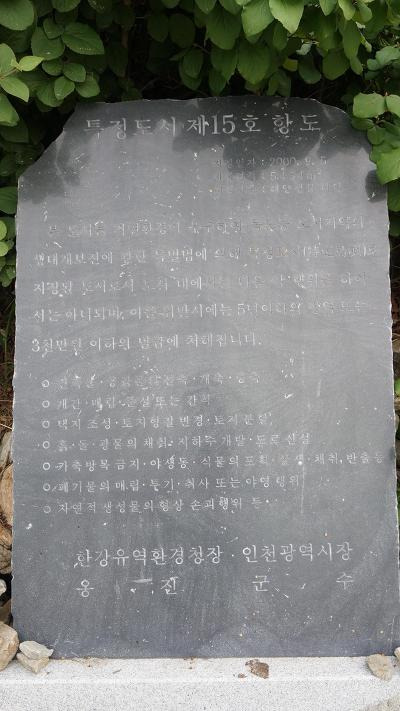 특정도서 제15호 항도
지정일자 : 2000. 9. 5
본 도서는 자연환경이 우수한 독도등 도서지역의
생태계보전에 관한 특별법에 의해 특정도서(特定島嶼)로
지정된 도서로서 도서 내에서는 다음 사항 행위를 하여
서는 아니되며, 이를 위반시에는 5년이하의 징역 또는
3천만원 이하의 벌금에 처해집니다.
○ 건축물·공작물의 신축·개축·증축
○ 개간·매립·준설 또는 간척
○ 택지 조성·토지형질 변경·토지 분할
○ 흙·돌·광물의 채취·지하수 개발·도로 신설
○ 가축방목 금지·야생동·식물의 포획·살생·채취, 반출등
○ 폐기물의 매립·투기·취사 또는 야영 행위
○ 자연적 생성물의 형상 손괴행위 등
한강유역환경청장·인천광역시장
옹진군수